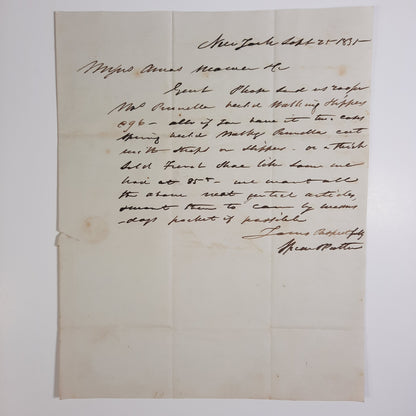 New York Sept 25 1835
Messrs Amos & Co
Gent Please send us
Prunella heel'd Walking Slippers
@96 - also if you have it two cases
Spring heel'd Walkg Prunella cut
with Straps or Slippers - or a thick
Sold French Shoe like some we
had at 85 - we want all
the above neat genteel articles
want them to come by
days packet if possible
Yours Respectfully